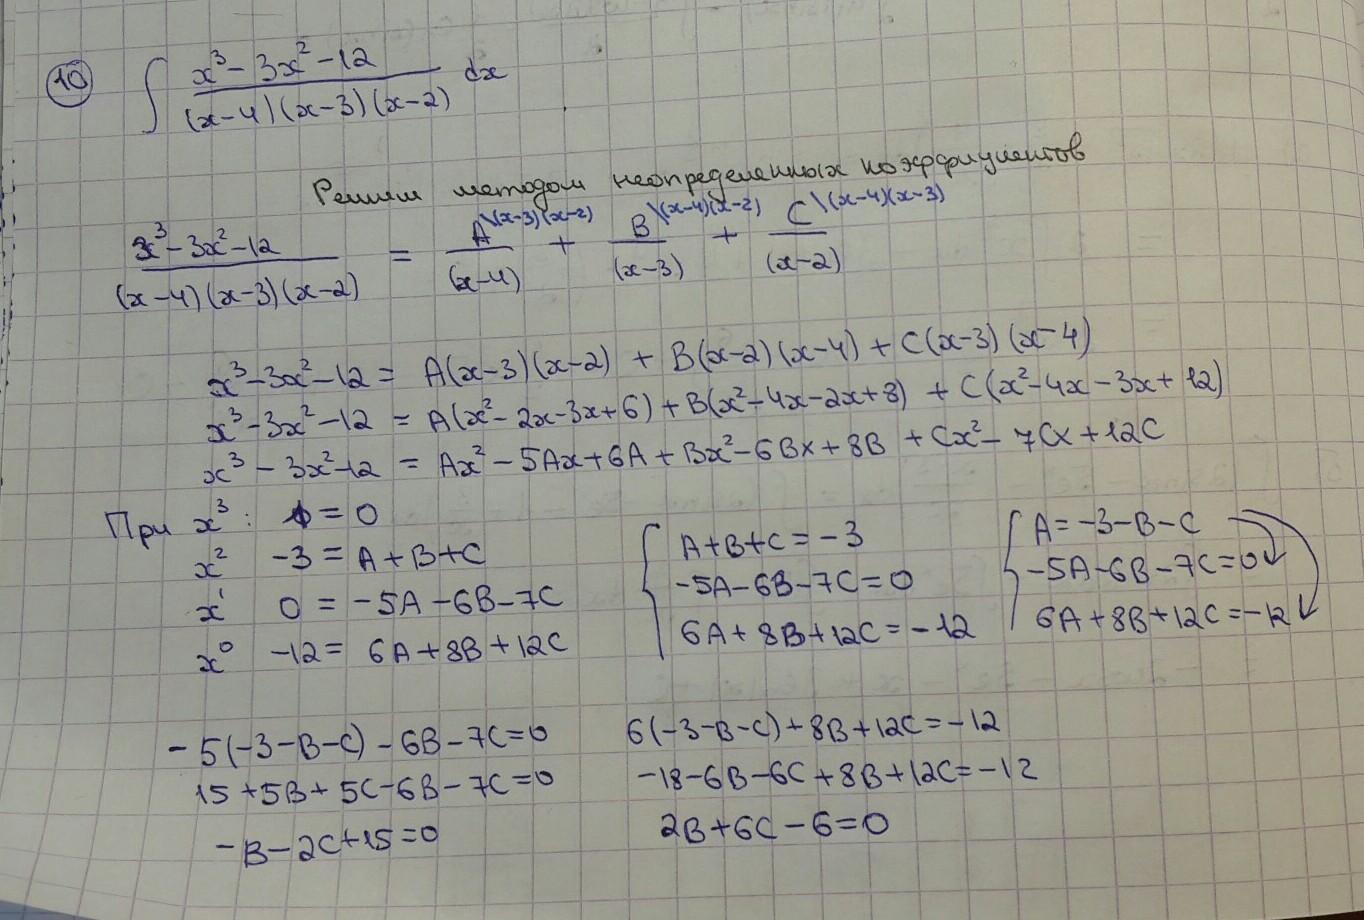 10 ∫ x³ - 3x² - 12 / (x-4)(x-3)(x-2) dx
Решим методом неопределенных коэффициентов
x³ - 3x² - 12 / (x-4)(x-3)(x-2) = A\(x-3)(x-2) / (x-4) + B\(x-4)(x-2) / (x-3) + C\(x-4)(x-3) / (x-2)
x³ - 3x² - 12 = A(x-3)(x-2) + B(x-2)(x-4) + C(x-3)(x-4)
x³ - 3x² - 12 = A(x² - 2x - 3x + 6) + B(x² - 4x - 2x + 8) + C(x² - 4x - 3x + 12)
x³ - 3x² - 12 = Ax² - 5Ax + 6A + Bx² - 6Bx + 8B + Cx² - 7Cx + 12C
При x³: 1 = 0
x² -3 = A + B + C
x¹ 0 = -5A - 6B - 7C
x⁰ -12 = 6A + 8B + 12C
{ A + B + C = -3
-5A - 6B - 7C = 0
6A + 8B + 12C = -12
{ A = -3 - B - C
-5A - 6B - 7C = 0
6A + 8B + 12C = -12
-5(-3-B-C) - 6B - 7C = 0
15 + 5B + 5C - 6B - 7C = 0
-B - 2C + 15 = 0
6(-3-B-C) + 8B + 12C = -12
-18 - 6B - 6C + 8B + 12C = -12
2B + 6C - 6 = 0